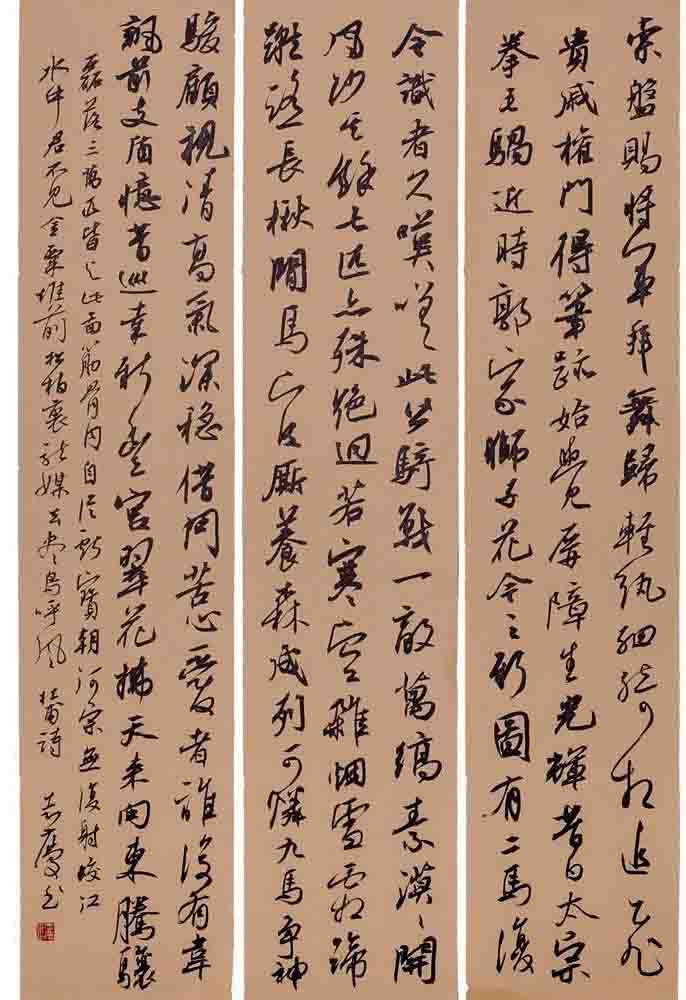 索盤賜將軍拜舞歸輕紈細綺相追飛
貴戚權門得筆跡始覺屏障生光輝昔日太宗
拳毛騧近時郭家獅子花今之新圖有二馬復
令識者久嘆嗟此皆騎戰一敵萬縞素漠漠開
風沙其餘七匹亦殊絕迥若寒空雜烟雪霜蹄
蹴踏長楸間馬官廝養森成列可憐九馬爭神
駿顧視清高氣深穩借問苦心愛者誰後有韋
諷前支遁憶昔巡幸新豐宮翠花拂天來向東騰驤
磊落三萬匹皆與此圖筋骨同自從獻寶朝河宗無復射蛟江
水中君不見金粟堆前松柏裏龍媒去盡鳥呼風 杜甫詩 志慶書